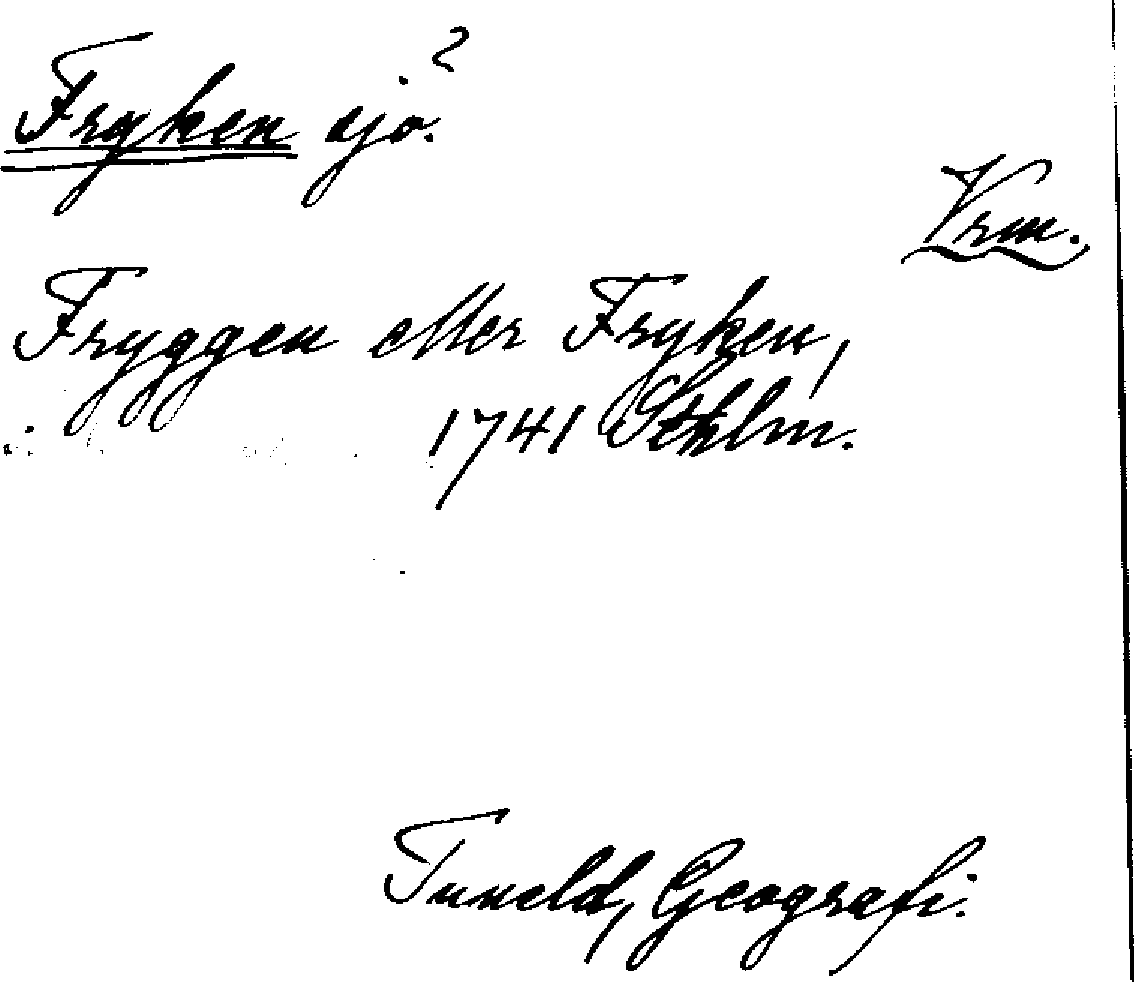 Fryken sjö.²
Vrm.
Fryggen eller Fryken,
1741 Sthlm.
Tuneld, Geografi.